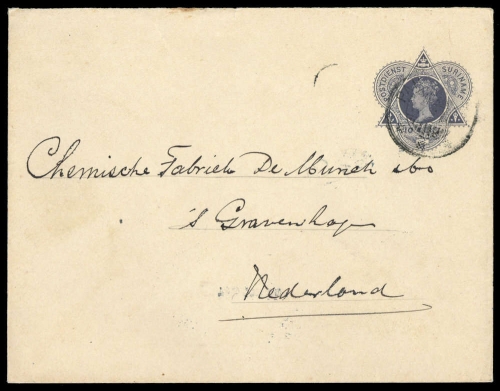 POSTDIENST SURINAME
Chemische Fabriek De Munck & Co
's Gravenhage
Nederland